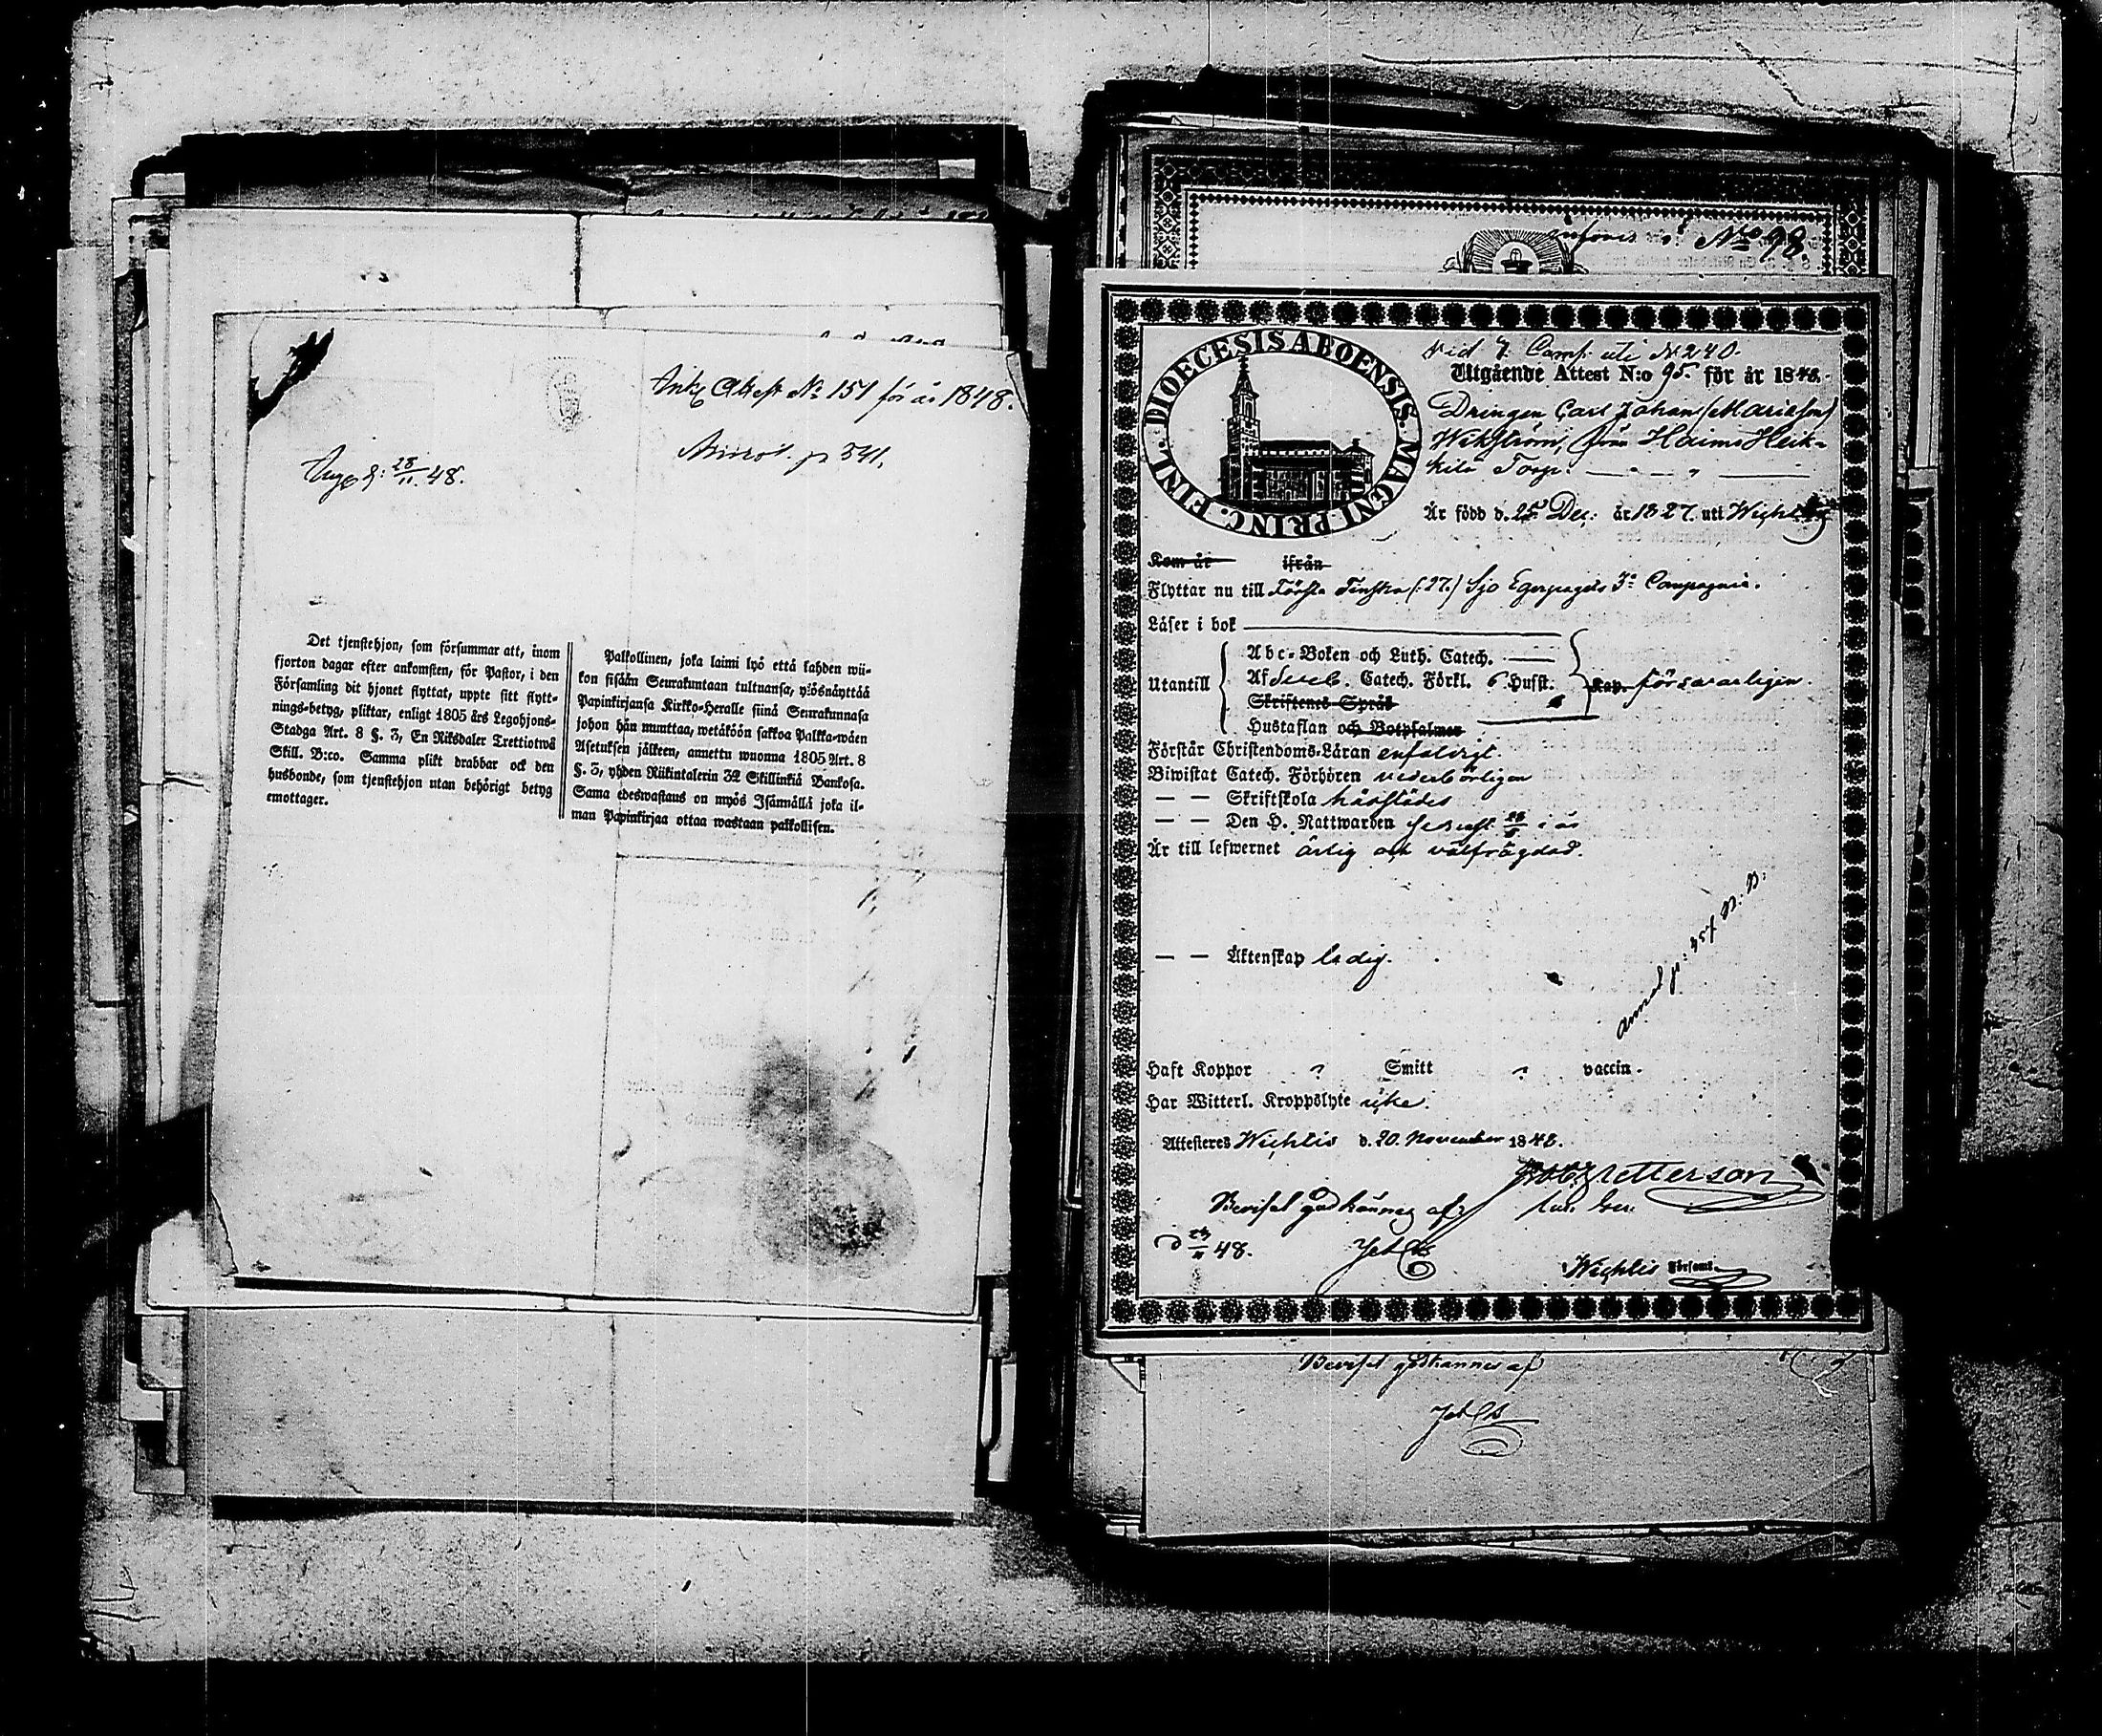 Ank Attest No 151 för år 1848.
p 541.
28/11 48.
Det tjenstehjon, som försummar att, inom
fjorton dagar efter ankomsten, för Pastor, i den
Församling dit hjonet flyttat, uppte sitt flytt-
nings-betyg, pliktar, enligt 1805 års Legohjons-
Stadga Art. 8 §. 3, En Riksdaler Trettiotwå
Skill. B:co. Samma plikt drabbar ock den
husbonde, som tjenstehjon utan behörigt betyg
emottager.
Palkollinen, joka laimi lyö että kahden wii-
kon sisään Seurakuntaan tultuansa, ylösnäyttää
Papinkirjansa Kirkko-Heralle siinä Seurakunnasa
johon hän muuttaa, wetäköön sakkoa Palkka-wäen
Asetuksen jälkeen, annettu wuonna 1805 Art. 8
§. 3, yhden Riikintalerin 32 Skillinkiä Bankosa.
Sama edeswastaus on myös Isännällä joka il-
man Papinkirjaa ottaa wastaan palkollisen.
Nro 98.
DIOECESIS ABOENSIS. MAGNI PRINC. FINL.
vid 7. Comp. uti N 240.
Utgående Attest N:o 95. för år 1848.
Drängen Carl Johan (Mariæson)
Wikström, från Haimo Heik-
kilä Torp.
Är född d. 25 Dec: år 1827. uti Wichtis
Kom år ifrån
Flyttar nu till Första Finska (:27.) Sjö Eqvipages 3:e Compagnie.
Läser i bok
Abc-Boken och Luth. Catech.
Utantill Af Sveb. Catech. Förkl. 6 Hufst. Kap. försvarligen.
Skriftenes Språk
Hustaflan och Botpsalmer
Förstår Christendoms-Läran enfaldigt.
Biwistat Catech. Förhören vederbörligen
— — Skriftskola härstädes
— — Den H. Nattwarden i år
Är till lefwernet ärlig och välfrägdad.
— — Äktenskap ledig.
p: 357
Haft Koppor Smitt vaccin.
Har Witterl. Kroppslyte icke.
Attesteres Wichtis d. 20. November 1848.
Petterson
Beviset godkännes af
d 48.
Wichtis Församl.
Beviset godkännes af